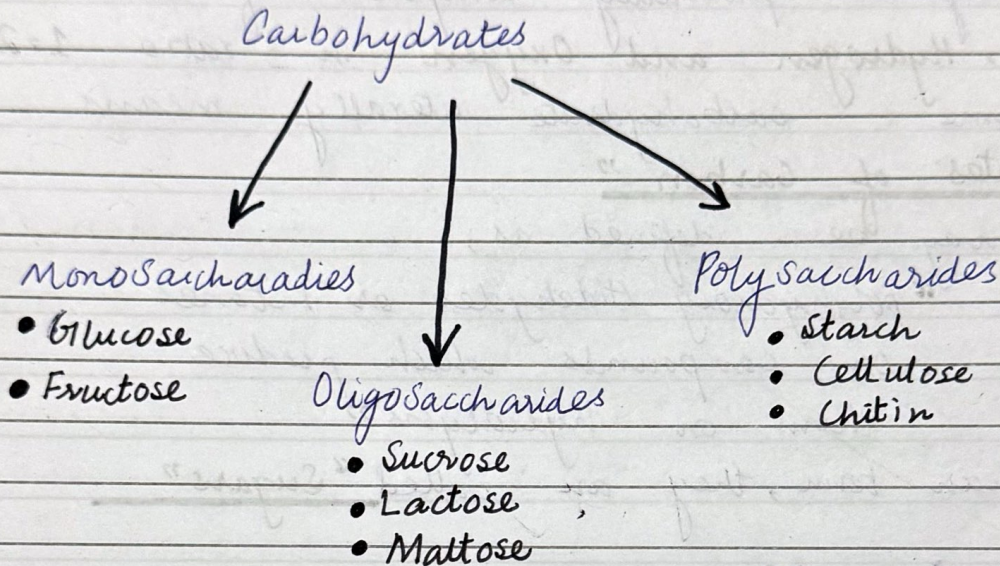 Carbohydrates
MonoSaccharadies
• Glucose
• Fructose
OligoSaccharides
• Sucrose
• Lactose
• Maltose
Polysaccharides
• Starch
• Cellulose
• Chitin